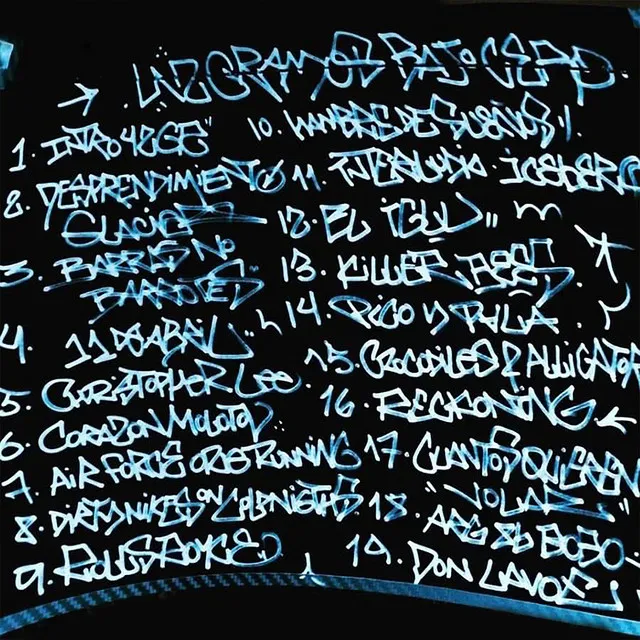 GRAMOS BAJO CERO.
1. INTRO
2. DESPRENDIMIENTO
GLACIAR
3. BARRAS NO
BARROTES
4. 11 DE ABRIL
5. CHRISTOPHER LEE
6. CORAZON MOLOTOV
7. AIR FORCE ONE RUNNING
8. DIRTY NIKES ON COLD NIGHTS
9. ROLLS ROYCE
10. HAMBRE DE SUEÑOS
11. INTERLUDIO ICEBERG
12. EL IGLU
13. KILLER BEES
14. PICO Y PALA
15. CROCODILES & ALLIGATOR
16. RECKONING
17. CUANTOS QUIEREN
"VOLAR"
18. ARG 86 BOBO
19. DON LAVOE